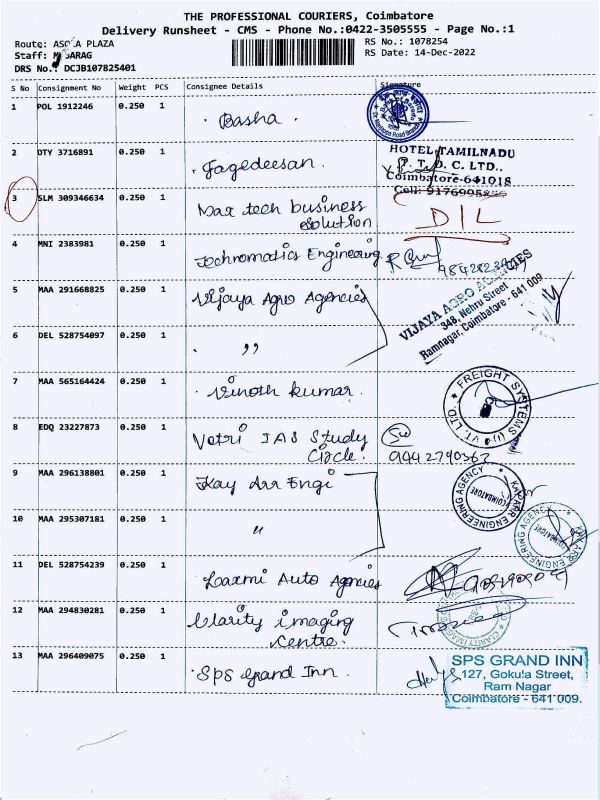 THE PROFESSIONAL COURIERS, Coimbatore
Delivery Runsheet - CMS - Phone No.:0422-3505555 - Page No.:1
Route: PLAZA
Staff:
DRS No.: DCJB107825401
RS No.: 1078254
RS Date: 14-Dec-2022
S No Consignment No Weight PCS Consignee Details Signature
1 POL 1912246 0.250 1 Basha
2 DTY 3716891 0.250 1 Jagedeesan
HOTEL TAMILNADU
T. T. D. C. LTD.,
Coimbatore-641018
Cell:
3 SLM 309346634 0.250 1 Max tech business
solution
4 MNI 2383981 0.250 1 Technomatics Engineering
5 MAA 291668825 0.250 1 Vijaya Agro Agencies
VIJAYA AGRO AGENCIES
348, Nehru Street
Ramnagar, Coimbatore - 641 009
6 DEL 528754097 0.250 1 ,,
7 MAA 565164424 0.250 1 Vinoth kumar
FREIGHT SYSTEMS
8 EDQ 23227873 0.250 1 Vetri IAS Study
Circle.
9442790363
9 MAA 296138801 0.250 1 Kay Arr Engi
KAY ARR ENGINEERING AGENCY
COIMBATORE
10 MAA 295307181 0.250 1 "
KAY ARR ENGINEERING AGENCY
COIMBATORE
11 DEL 528754239 0.250 1 Laxmi Auto Agencies
12 MAA 294830281 0.250 1 Clarity imaging
Centre.
13 MAA 296409075 0.250 1 Sps Grand Inn.
SPS GRAND INN
127, Gokula Street,
Ram Nagar
Coimbatore - 641 009.